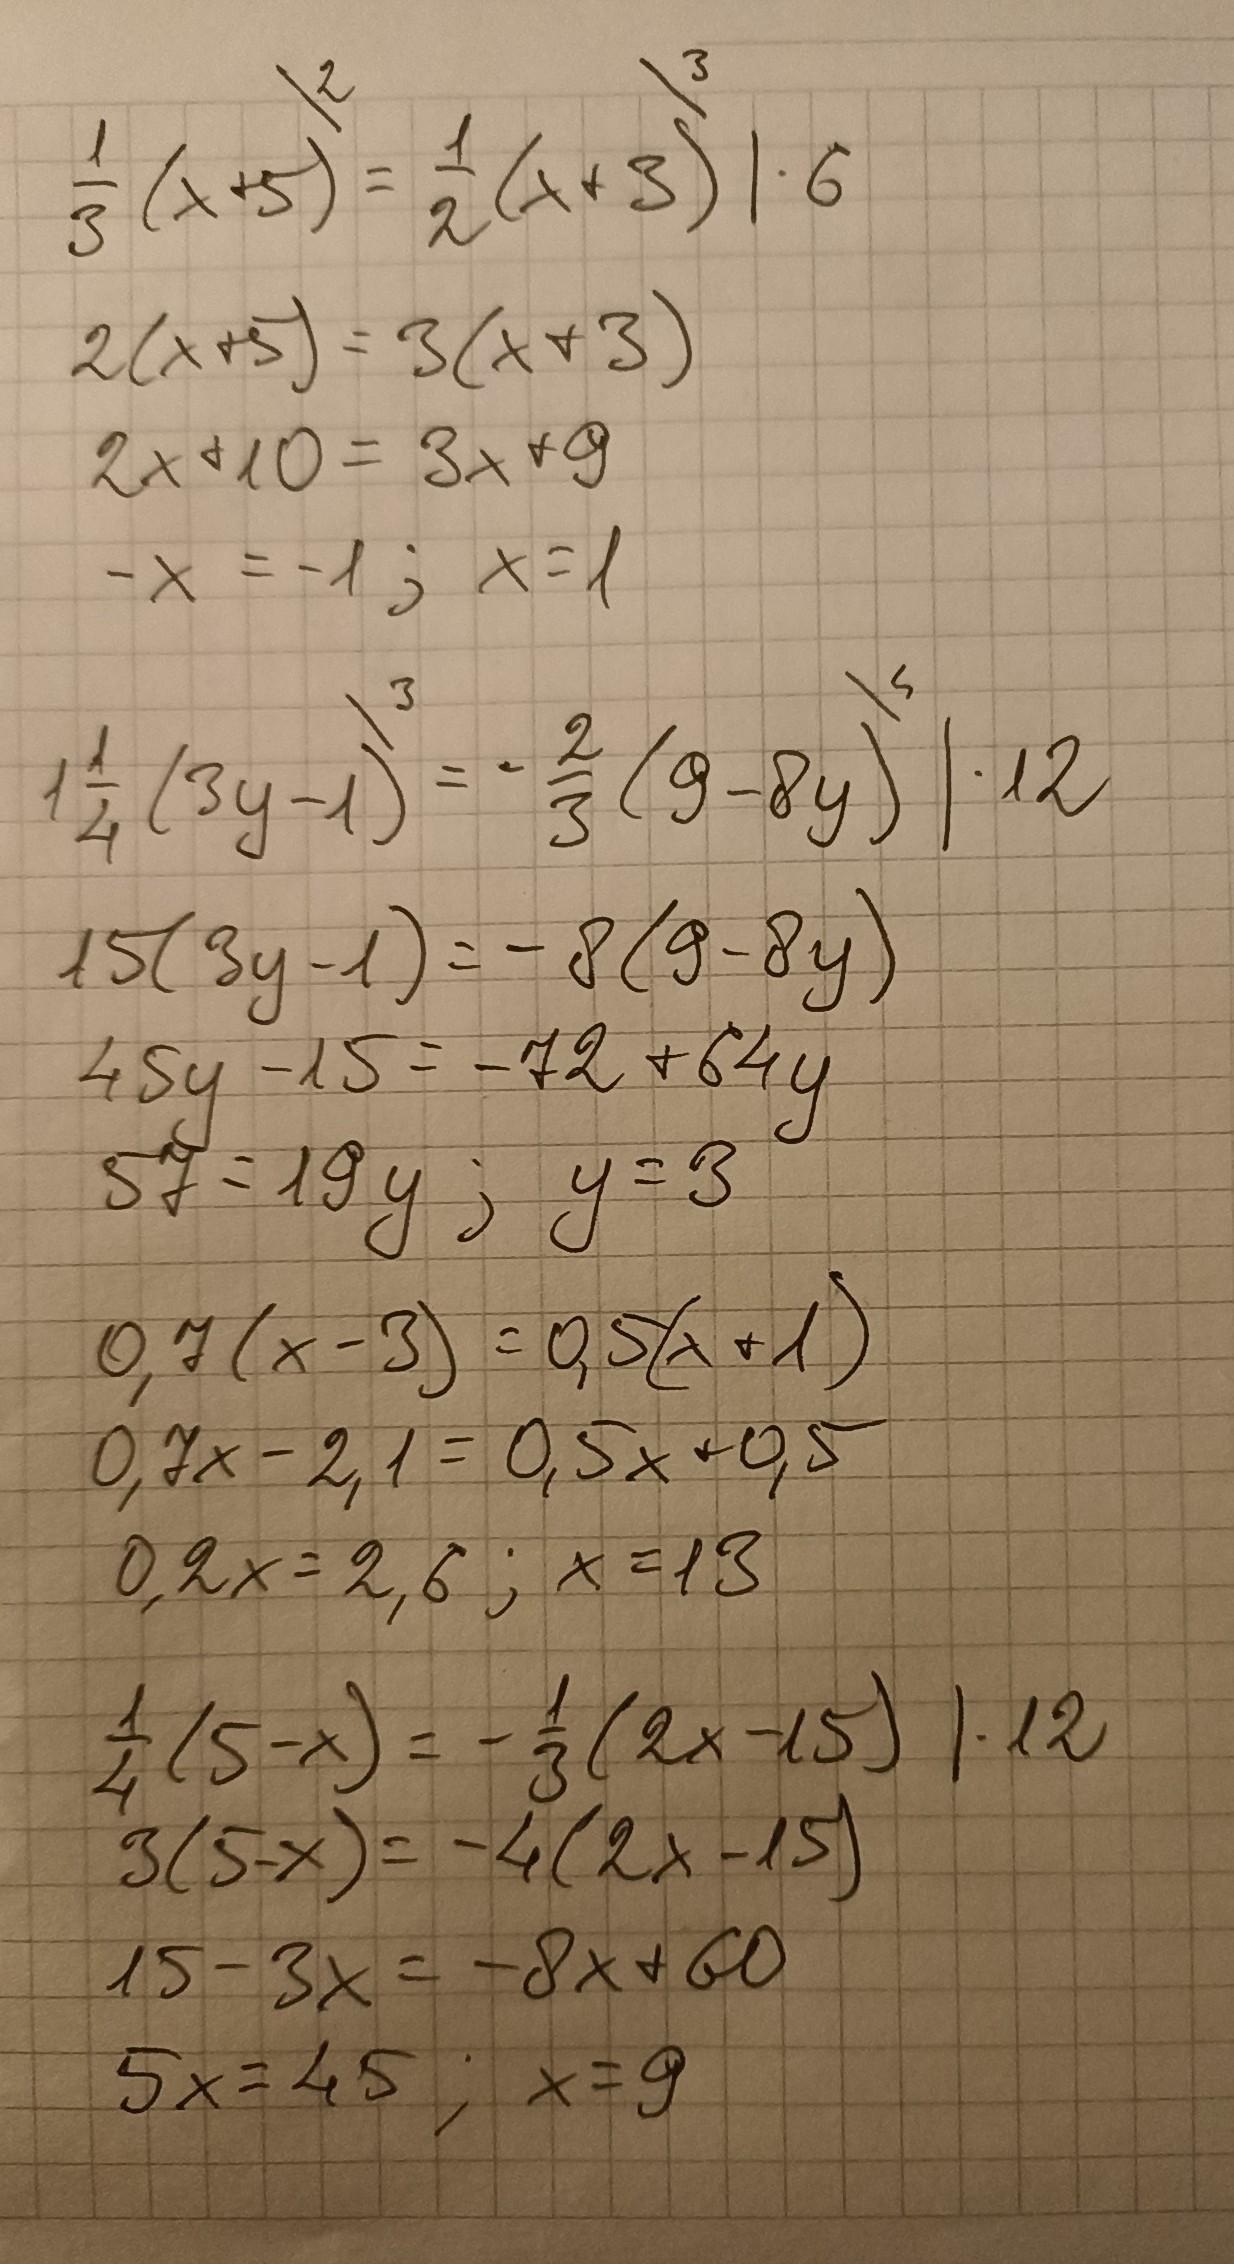 \2 \3
1/3 (x+5) = 1/2 (x+3) |·6
2(x+5) = 3(x+3)
2x+10 = 3x+9
-x = -1 ; x=1
\3 \4
1 1/4 (3y-1) = - 2/3 (9-8y) |·12
15(3y-1) = -8(9-8y)
45y -15 = -72 +64y
57 = 19y ; y=3
0,7(x-3) = 0,5(x+1)
0,7x - 2,1 = 0,5x+0,5
0,2x = 2,6 ; x=13
1/4 (5-x) = - 1/3 (2x-15) |·12
3(5-x) = -4(2x-15)
15-3x = -8x+60
5x=45 ; x=9